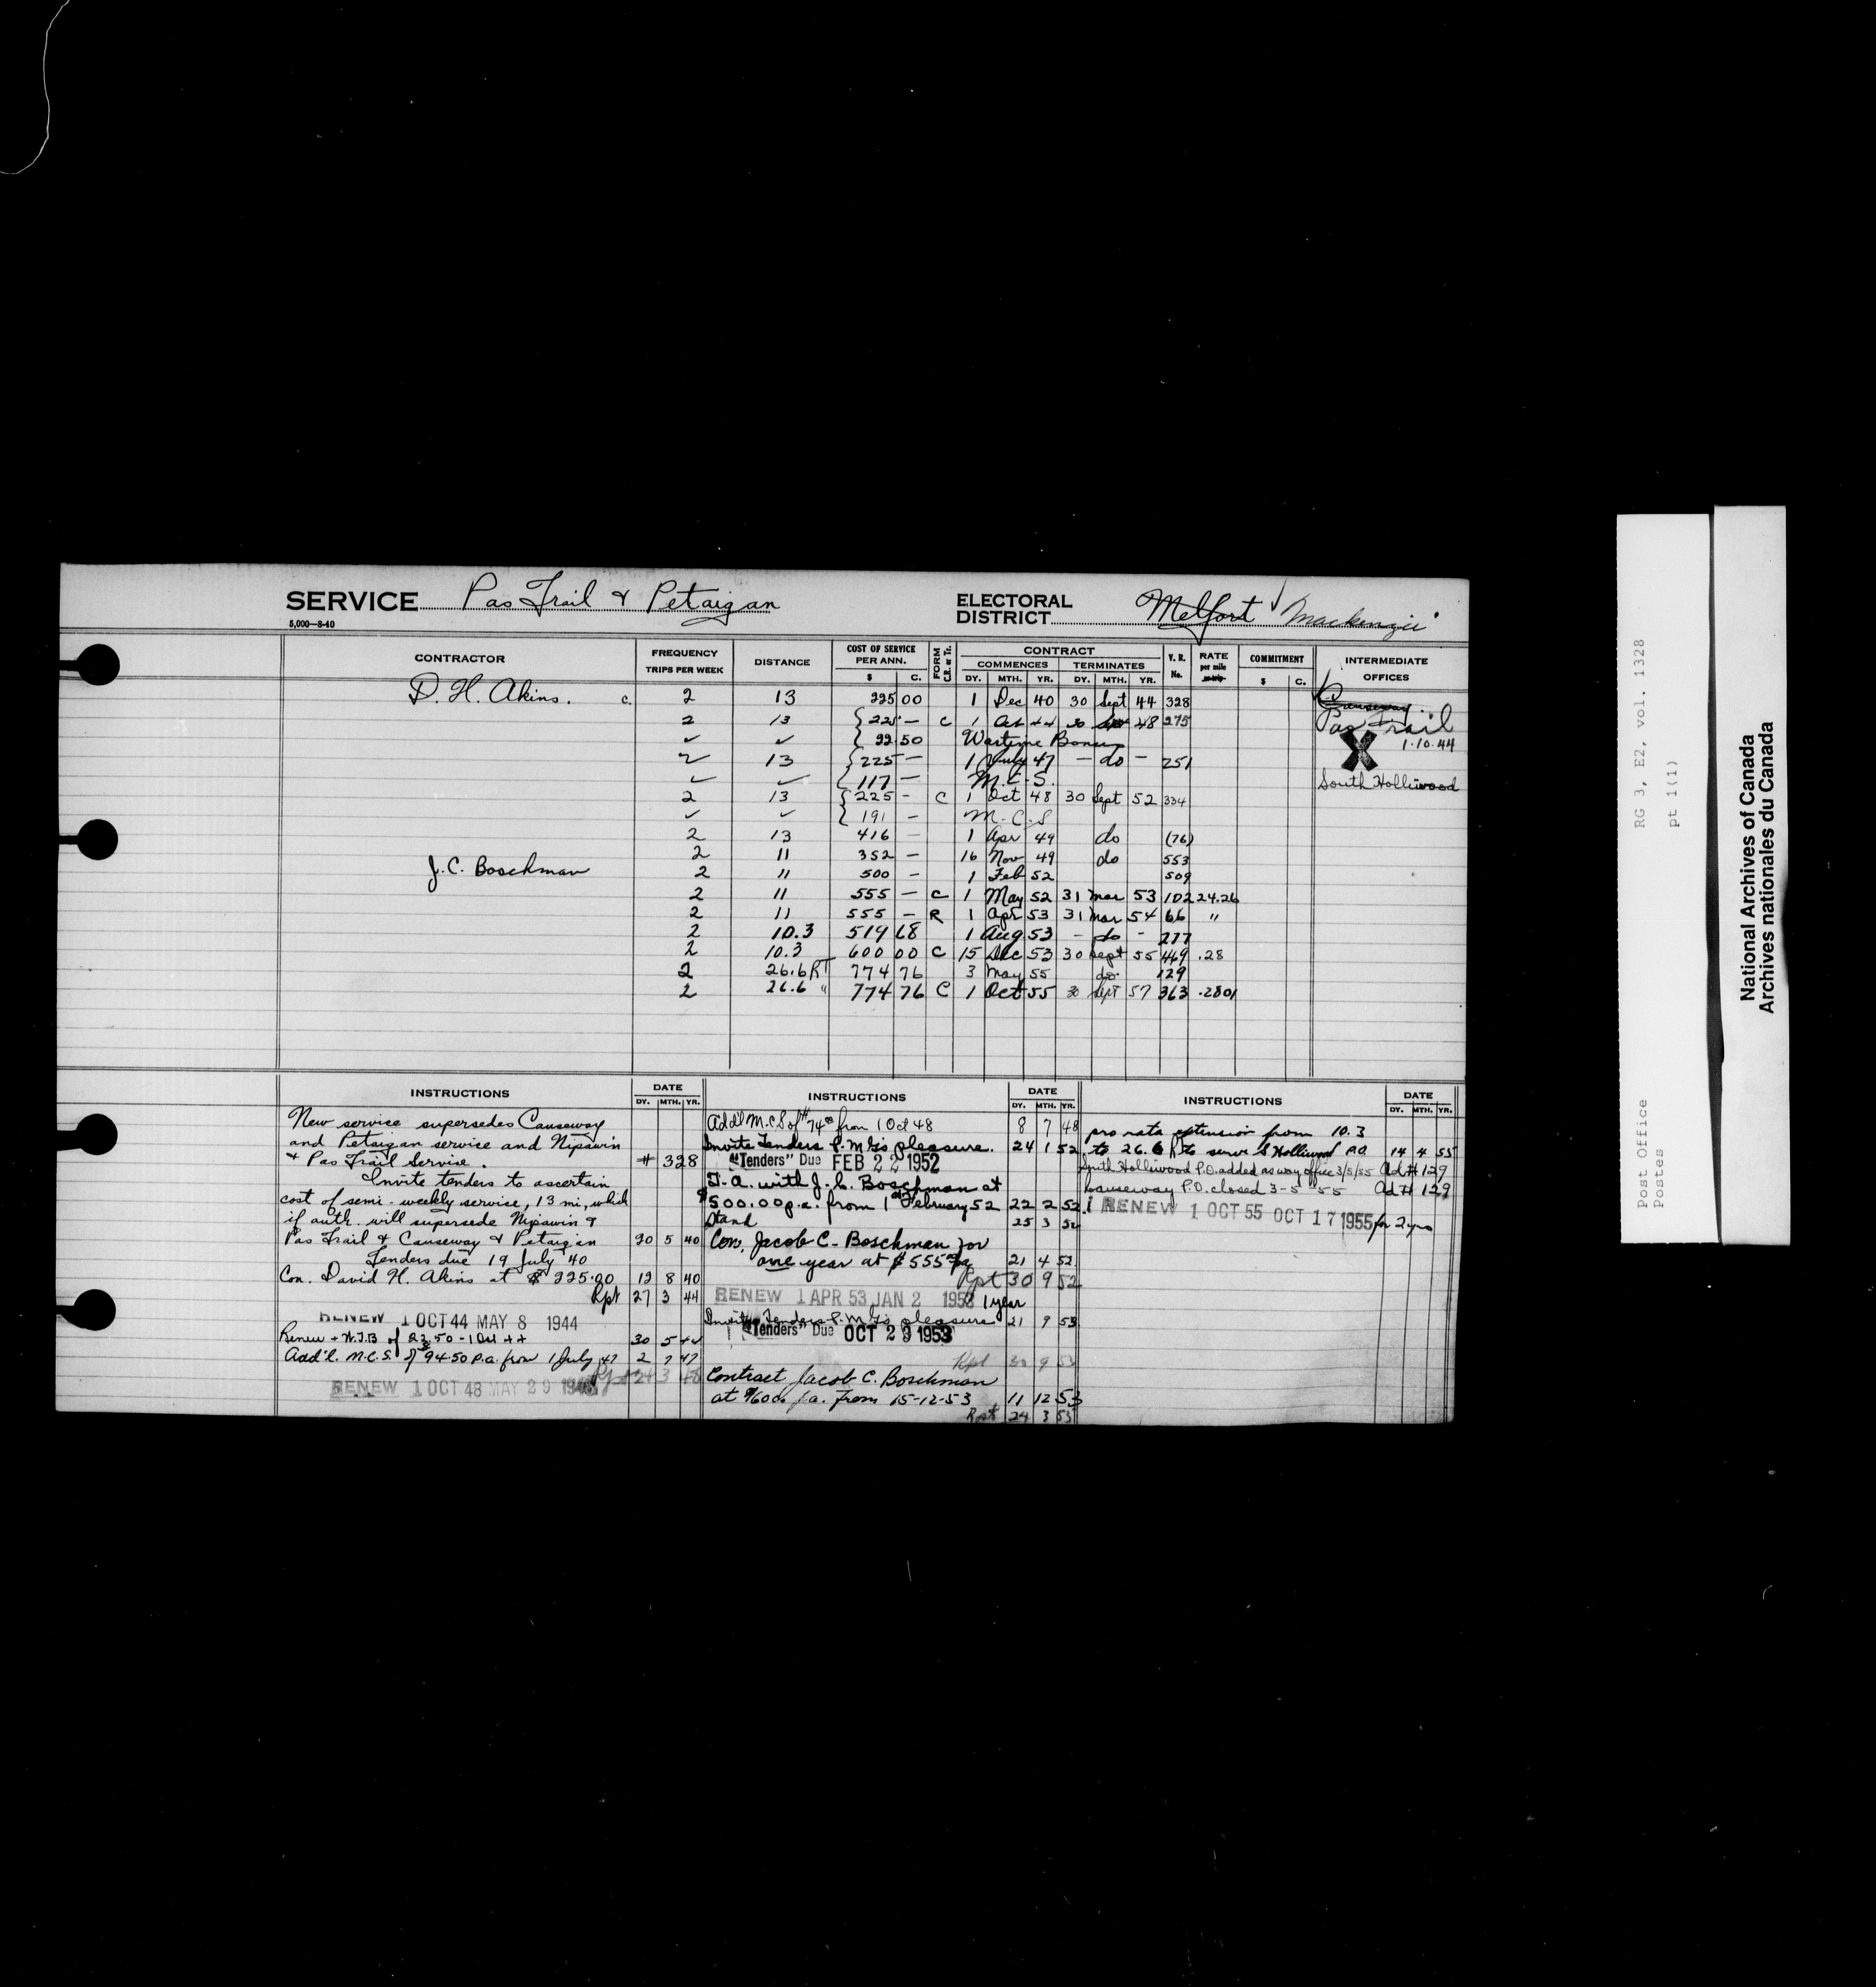 SERVICE Pas Trail & Petaigan
ELECTORAL DISTRICT Melfort Mackenzie
5,000—8-40
CONTRACTOR FREQUENCY TRIPS PER WEEK DISTANCE COST OF SERVICE PER ANN. $ C. FORM C.R. or Tr. CONTRACT COMMENCES DY. MTH. YR. TERMINATES DY. MTH. YR. V. R. No. RATE per mile COMMITMENT $ C. INTERMEDIATE OFFICES
D. H. Akins. c. 2 13 225 00 1 Dec 40 30 Sept 44 328 Causeway
2 13 225 — C 1 Oct 44 30 Sept 48 275 Pas Trail
✓ ✓ 22 50 Wartime Bonus 1.10.44
2 13 225 — 1 July 47 — do — 251 X
✓ ✓ 117 — M.C.S. South Holliwood
2 13 225 - C 1 Oct 48 30 Sept 52 334
✓ ✓ 191 — M.C.S
2 13 416 — 1 Apr 49 do (76)
2 11 352 — 16 Nov 49 do 553
J. C. Boschman 2 11 500 — 1 Feb 52 509
2 11 555 — C 1 May 52 31 Mar 53 102 24.26
2 11 555 — R 1 Apr 53 31 Mar 54 66 "
2 10.3 519 68 1 Aug 53 - do - 277
2 10.3 600 00 C 15 Dec 53 30 Sept 55 469 .28
2 26.6 RT 774 76 3 May 55 do 129
2 26.6 " 774 76 C 1 Oct 55 30 Sept 57 363 .2801
INSTRUCTIONS DATE DY. MTH. YR.
New service supersedes Causeway
and Petaigan service and Nipawin
& Pas Trail Service. # 328
Invite tenders to ascertain
cost of semi-weekly service, 13 mi, which
if auth. will supersede Nipawin &
Pas Trail & Causeway & Petaigan 20 5 40
Tenders due 19 July 40
Con. David H. Akins at $225.00 12 8 40
Rpt 27 3 44
RENEW 1 OCT 44 MAY 8 1944
Renew + W.T.B of 22.50 - 1 Oct 44 30 5 44
Add'l. M.C.S. of 94.50 p.a. from 1 July 47 2 7 47
Rpt 24 3 48
RENEW 1 OCT 48 MAY 29 1948
INSTRUCTIONS DATE DY. MTH. YR.
Add'l M.C.S of $74.00 from 1 Oct 48 8 7 48
Invite Tenders P.M.G's pleasure. 24 1 52
"Tenders" Due FEB 22 1952
T.A. with J. C. Boschman at
$500.00 p.a. from 1st February 52 22 2 52
Stand 25 3 52
Con. Jacob C. Boschman for
one year at $555.00 pa 21 4 52
Rpt 30 9 52
RENEW 1 APR 53 JAN 2 1953 1 year
Invite Tenders P.M.G's pleasure 21 9 53
"Tenders" Due OCT 23 1953
Rpt 30 9 53
Contract Jacob C. Boschman
at $600 p.a. from 15-12-53 11 12 53
Rpt 24 3 55
INSTRUCTIONS DATE DY. MTH. YR.
pro rata extension from 10.3
to 26.6 R to serve S Holliwood P.O. 14 4 55
South Holliwood P.O. added as way office 3/5/55 Ad # 129
Causeway P.O. closed 3-5-55 Ad # 129
RENEW 1 OCT 55 OCT 17 1955 for 2 yrs
RG 3, E2, vol. 1328
pt 1(1)
Post Office
Postes
National Archives of Canada
Archives nationales du Canada